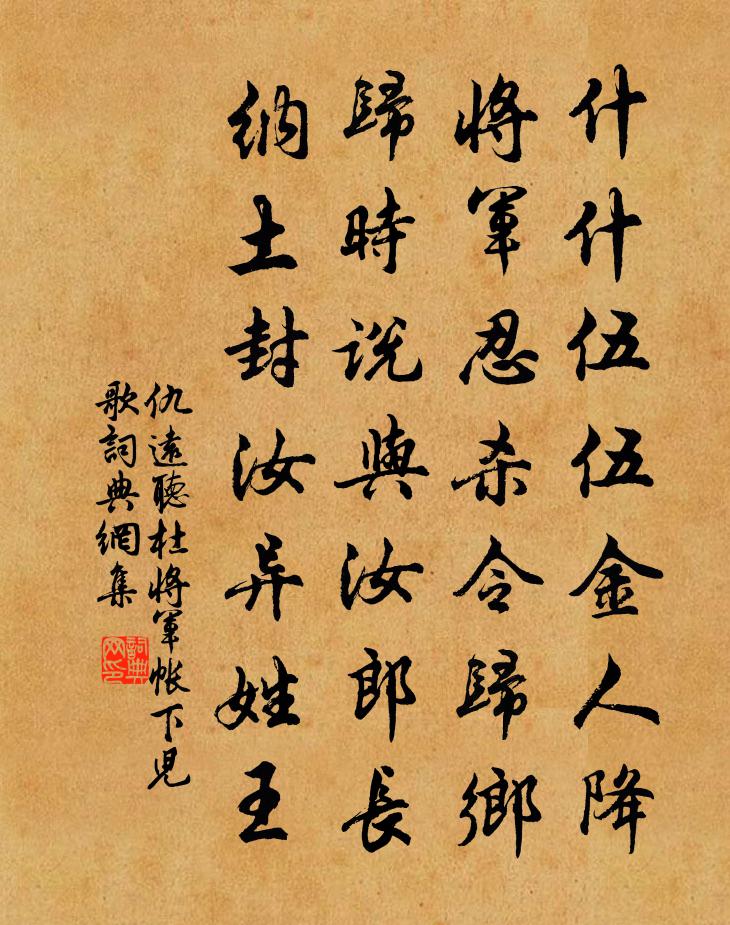 什什伍伍金人降
將軍忍杀令歸鄉
歸時説與汝郎長
納土封汝异姓王
仇遠聽杜將軍帳下児
歌詞典網集
詞典网印